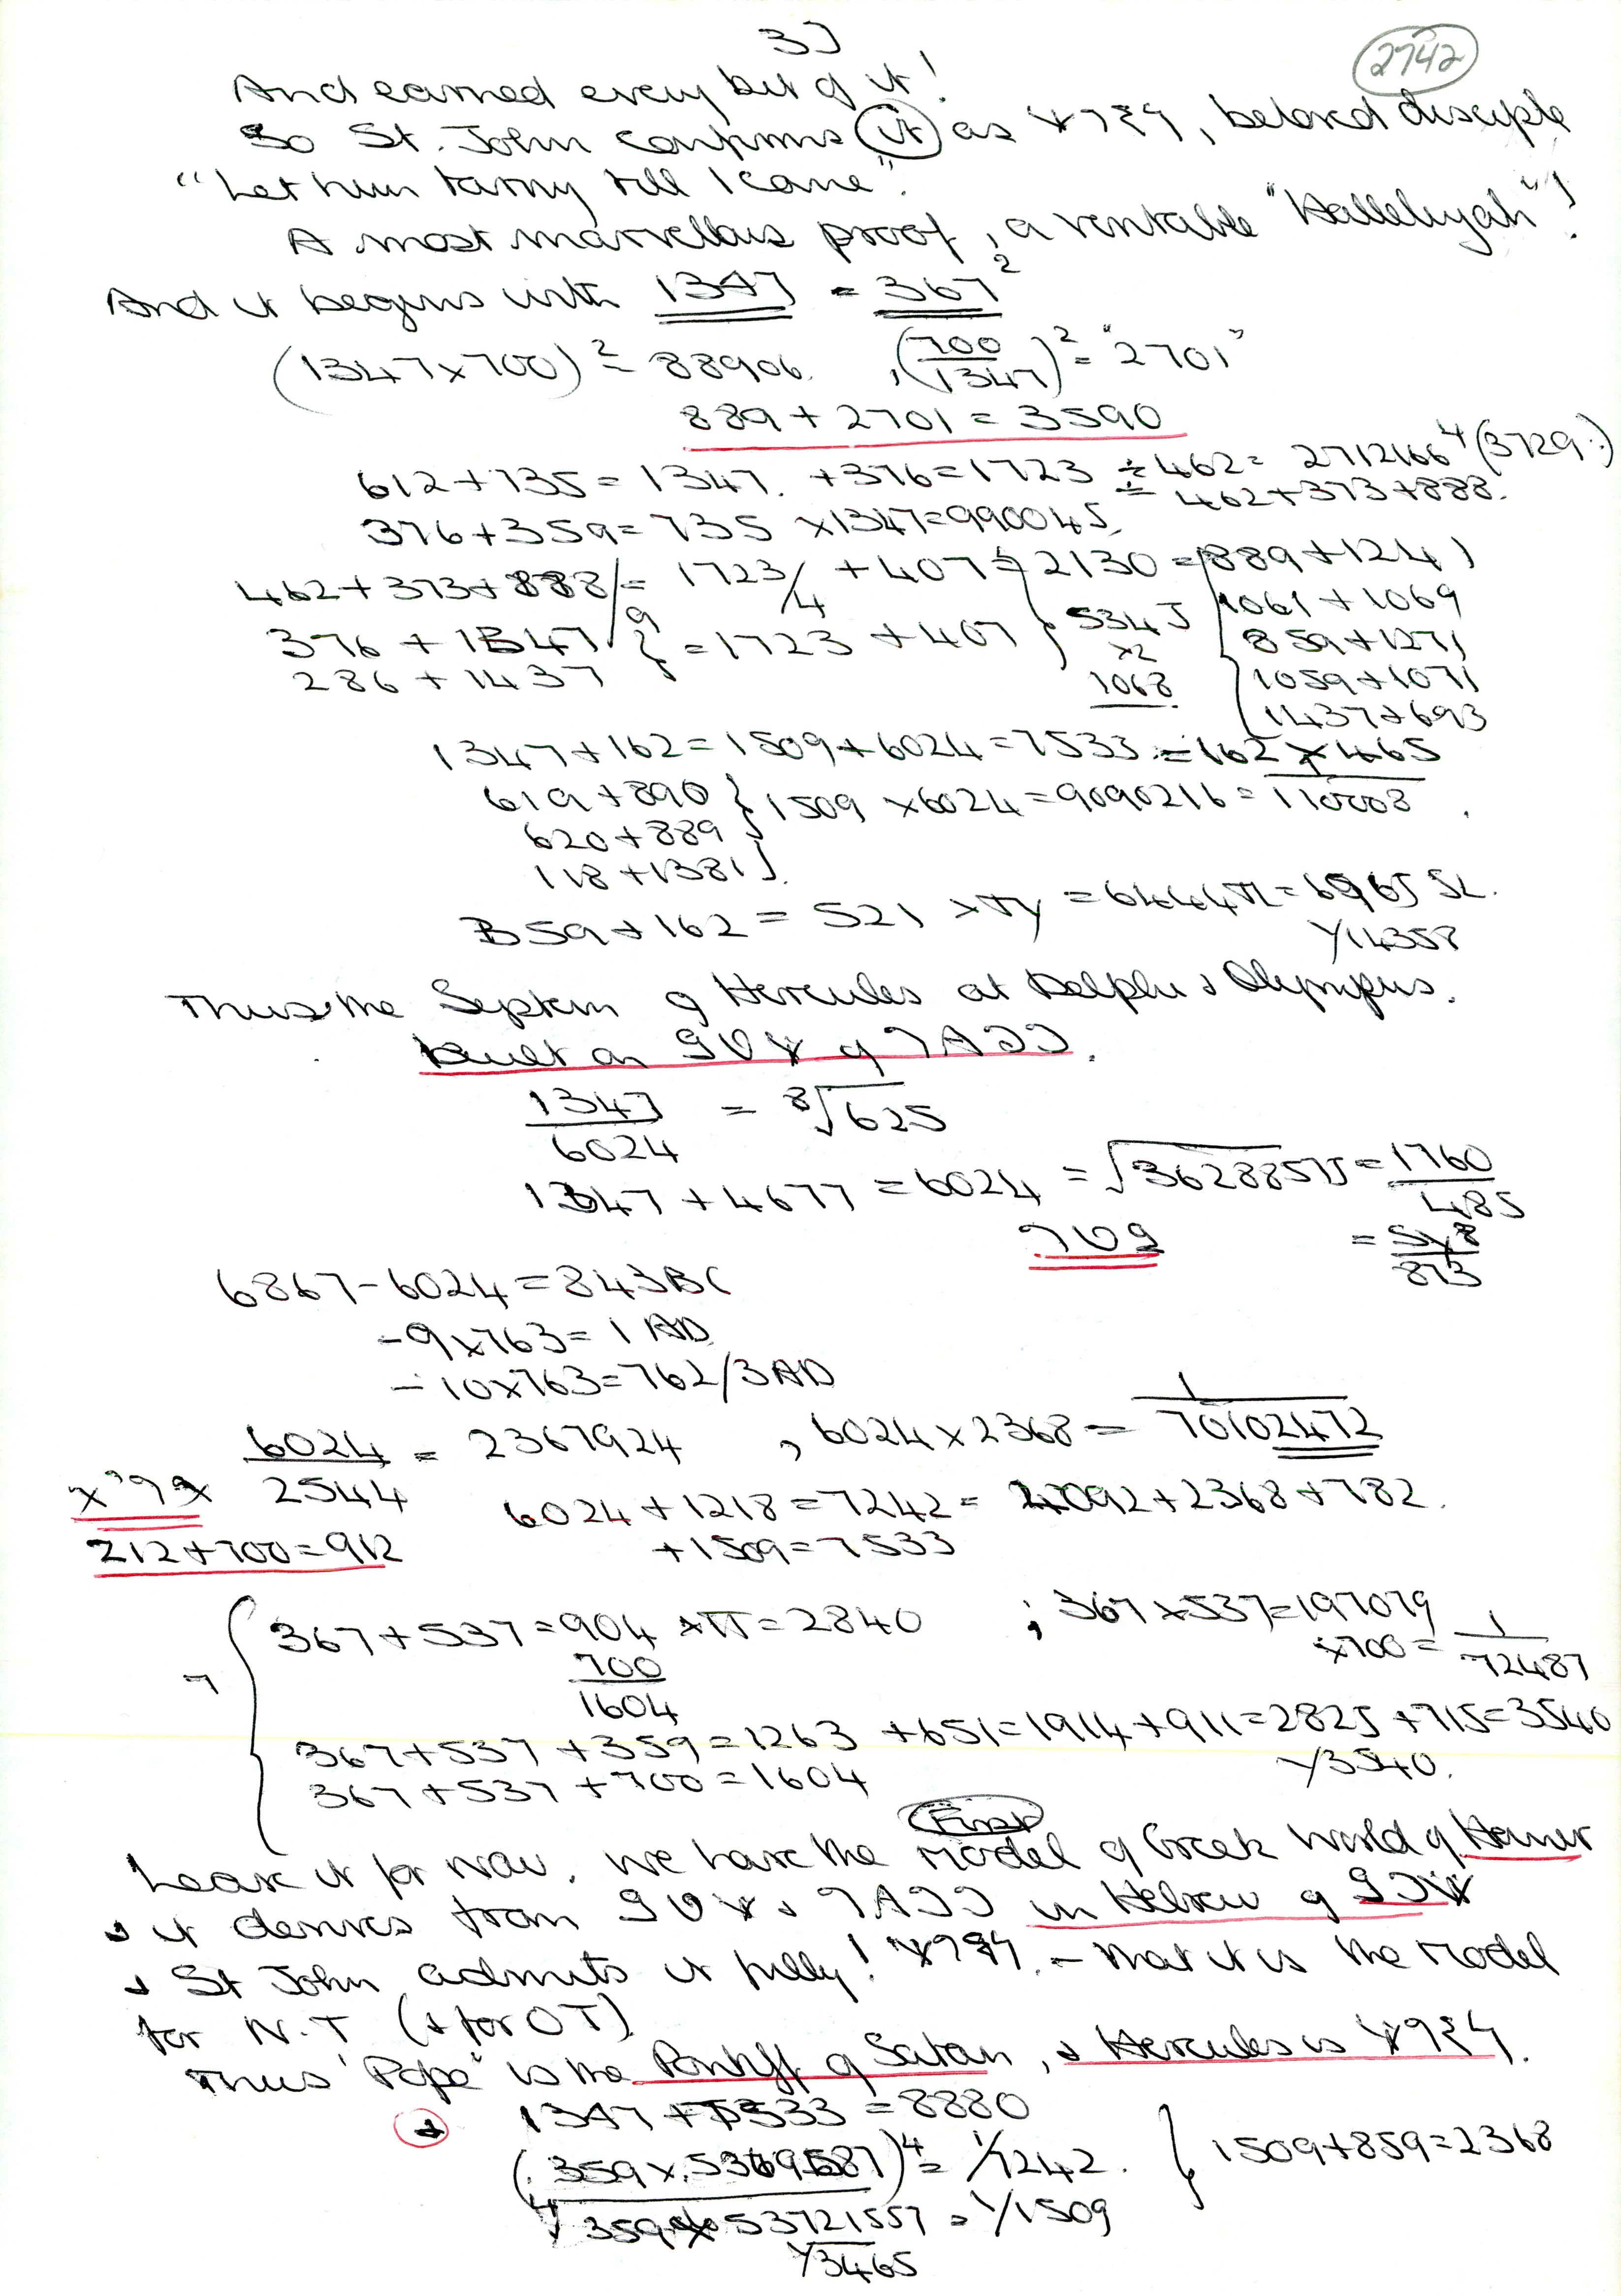 3]
2742
And earned every bit of it!
So St. John confirms it as , beloved disciple
"Let him tarry till I come".
A most marvellous proof, a veritable "Hallelujah"!
And it begins with 1347 = 367²
(1347×700)² = 88906. , (700/1347)² = "2701"
889 + 2701 = 3590
612+735 = 1347. +376=1723 ÷462= 2712166⁴ (3729:)
= 462+373+888.
376+359=735 ×1347=990045.
462+373+888 = 1723/4 + 407 = 2130 = 889+1241
1061 + 1069
376 + 1347 } = 1723 + 407 } 534J 859+1271
286 + 1437 ×2 1059+1071
1068 1437+693
1347+162=1509+6024=7533.=162×465
619+890 } 1509 ×6024=9090216=110008
620+889
118+1381
359+162 = 521
1/14358
Thus the System of Hercules at Delphi & Olympus.
Built on of
1347/6024 = ⁸√625
1347 + 4677 = 6024 = √36288575=1760/485
6867-6024=843BC
-9×763=1 AD
-10×763=762/3AD
6024/2544 = 2367924 , 6024×2368= 1/70102472
6024+1218=7242= 4092+2368+782.
212+700=912 +1509=7533
367+537=904 ×π=2840 ; 367×537=197079
700 ×700= 1/72487
1604
367+537+359=1263 +651=1914+911=2825+715=3540
1/3540.
367+537+700=1604
First
Leave it for now. We have the model of Greek World of Homer
& it derives from & in Hebrew of
& St John admits it fully! - that it is the model
for N.T (& for OT)
Thus "Pope" is the Pontiff of Satan, & Hercules is
& 1347+7533=8880
= 1/7242. } 1509+859=2368
= 1/1509
1/3465